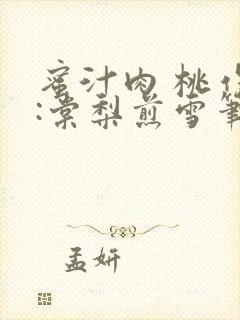 蜜汁肉桃
:棠梨煎雪筆
孟妍